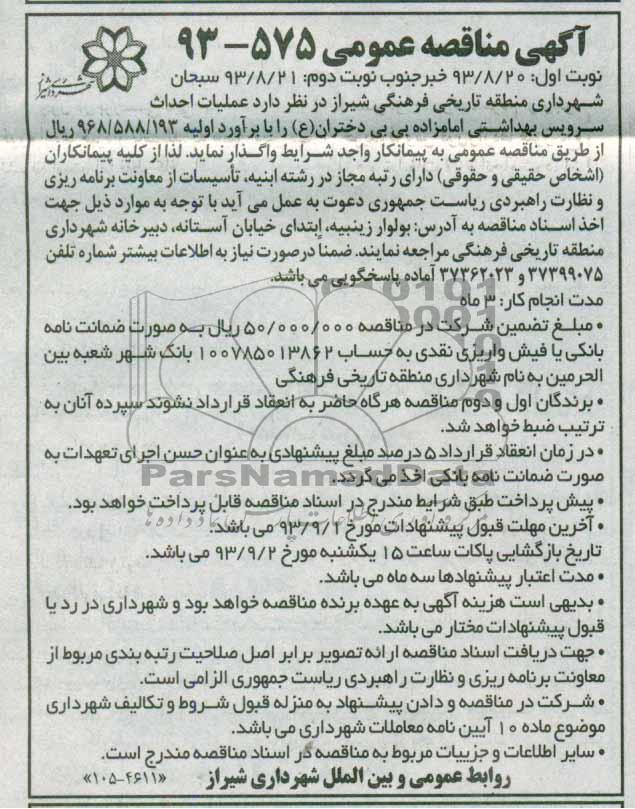 آگهی مناقصه عمومی ۵۷۵-۹۳
نوبت اول: ۹۳/۸/۲۰ خبرجنوب نوبت دوم: ۹۳/۸/۲۱ سبحان
شهرداری منطقه تاریخی فرهنگی شیراز در نظر دارد عملیات احداث
سرویس بهداشتی امامزاده بی بی دختران(ع) را با برآورد اولیه ۹۶۸/۵۸۸/۱۹۳ ریال
از طریق مناقصه عمومی به پیمانکار واجد شرایط واگذار نماید. لذا از کلیه پیمانکاران
(اشخاص حقیقی و حقوقی) دارای رتبه مجاز در رشته ابنیه، تأسیسات از معاونت برنامه ریزی
و نظارت راهبردی ریاست جمهوری دعوت به عمل می آید با توجه به موارد ذیل جهت
اخذ اسناد مناقصه به آدرس: بولوار زینبیه، ابتدای خیابان آستانه، دبیرخانه شهرداری
منطقه تاریخی فرهنگی مراجعه نمایند. ضمناً درصورت نیاز به اطلاعات بیشتر شماره تلفن
۳۷۳۹۹۰۷۵ و ۳۷۳۶۲۰۲۳ آماده پاسخگویی می باشد.
مدت انجام کار: ۳ ماه
• مبلغ تضمین شرکت در مناقصه ۵۰/۰۰۰/۰۰۰ ریال به صورت ضمانت نامه
بانکی یا فیش واریزی نقدی به حساب ۱۰۰۷۸۵۰۱۳۸۶۲ بانک شهر شعبه بین
الحرمین به نام شهرداری منطقه تاریخی فرهنگی
• برندگان اول و دوم مناقصه هرگاه حاضر به انعقاد قرارداد نشوند سپرده آنان به
ترتیب ضبط خواهد شد.
• در زمان انعقاد قرارداد ۵ درصد مبلغ پیشنهادی به عنوان حسن اجرای تعهدات به
صورت ضمانت نامه بانکی اخذ می گردد.
ParsNamadData
• پیش پرداخت طبق شرایط مندرج در اسناد مناقصه قابل پرداخت خواهد بود.
• آخرین مهلت قبول پیشنهادات مورخ ۹۳/۹/۱ می باشد.
تاریخ بازگشایی پاکات ساعت ۱۵ یکشنبه مورخ ۹۳/۹/۲ می باشد.
• مدت اعتبار پیشنهادها سه ماه می باشد.
• بدیهی است هزینه آگهی به عهده برنده مناقصه خواهد بود و شهرداری در رد یا
قبول پیشنهادات مختار می باشد.
• جهت دریافت اسناد مناقصه ارائه تصویر برابر اصل صلاحیت رتبه بندی مربوط از
معاونت برنامه ریزی و نظارت راهبردی ریاست جمهوری الزامی است.
• شرکت در مناقصه و دادن پیشنهاد به منزله قبول شروط و تکالیف شهرداری
موضوع ماده ۱۰ آیین نامه معاملات شهرداری می باشد.
• سایر اطلاعات و جزییات مربوط به مناقصه در اسناد مناقصه مندرج است.
روابط عمومی و بین الملل شهرداری شیراز «۱۰۵-۴۶۱۱»